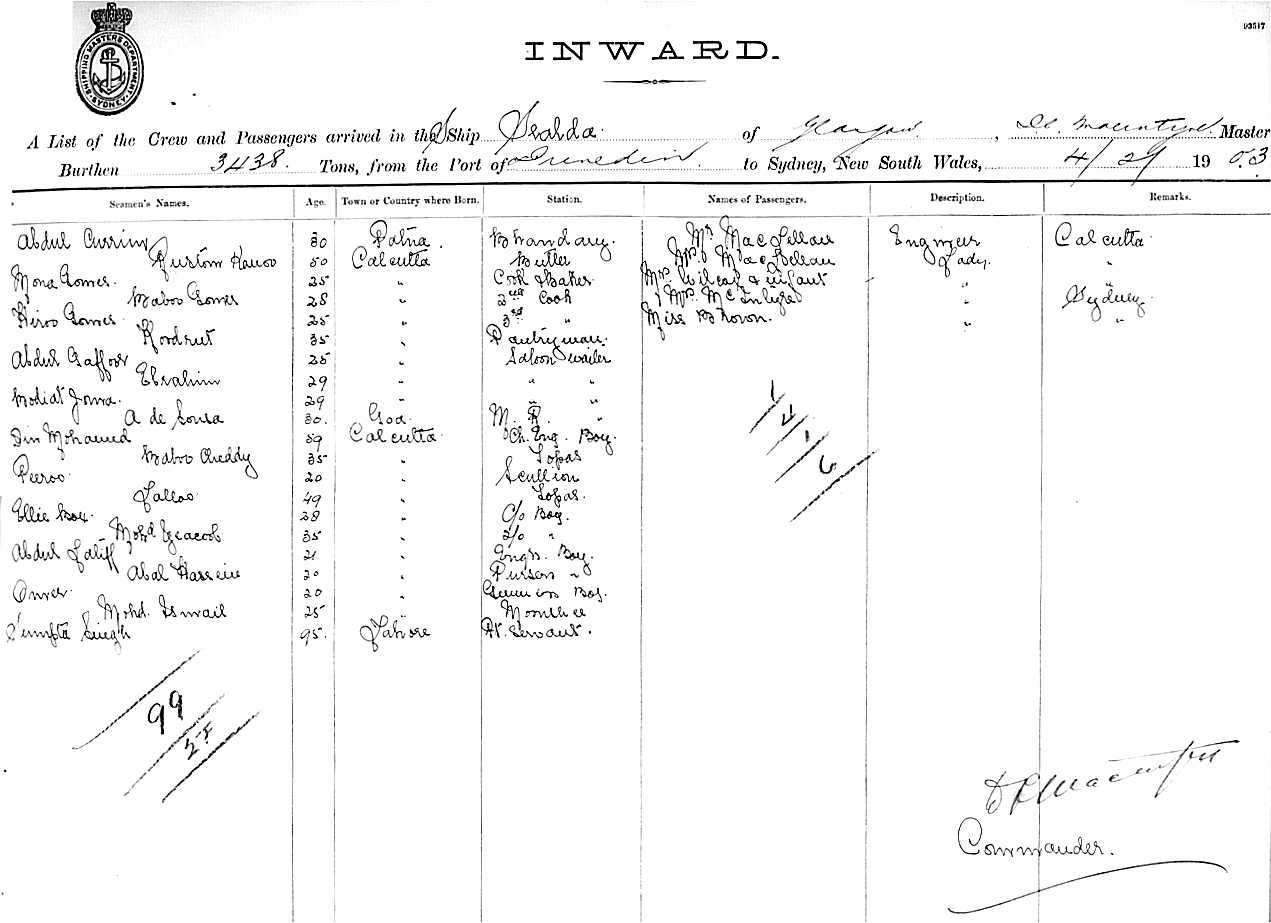 93517
SHIPPING MASTERS DEPARTMENT SYDNEY
INWARD.
A List of the Crew and Passengers arrived in the S/Ship Sealda of Glasgow, Macintyre Master
Burthen 3438. Tons, from the Port of Dunedin to Sydney, New South Wales, 4/29 1903
Seamen's Names. Age. Town or Country where Born. Station. Names of Passengers. Description. Remarks.
Abdul Currim 30 Patna. Bhandary. Mr MacLellan Engineer Calcutta
50 Calcutta Butler Mrs MacLellan Lady. "
Mona Gomes. 25 " Cook & Baker Mrs & infant "
Baboo Gomes 28 " 2nd Cook Mrs McIntyre " Sydney
Hiroo Gomes 25 " 3rd " Miss Brown. " "
Koodrut 35 " Pantryman.
Abdul Gaffoor 25 " Saloon waiter
Ebrahim 29 " " "
29 " " "
A de Sousa 30. Goa. M. R. "
Din Mohamed 59 Calcutta Ch. Eng. Boy.
Baboo Cheddy 35 " Topas
Peeroo 20 " Scullion
49 " Topas.
Ellie Box 28 " C/o Boy.
Mohd Yeacoob 35 " 2/o "
Abdul Latiff 21 " Engn. Boy.
Abal Hassein 20 " Purser "
20 " Boy.
Mohd. Ismail 25 " Moonshee
Singh 95. Lahore Pt. Servant.
1/2/1/6
99
Macintyre
Commander.